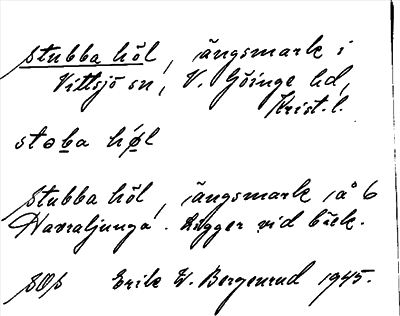 stubba höl, ängsmark i
Vittsjö sn, V. Göinge hd,
Krist. l.
stoba høl
stubba höl, ängsmark, å 6
Havraljunga. Ligger vid bäck.
Erik W. Bergenrud 1945.